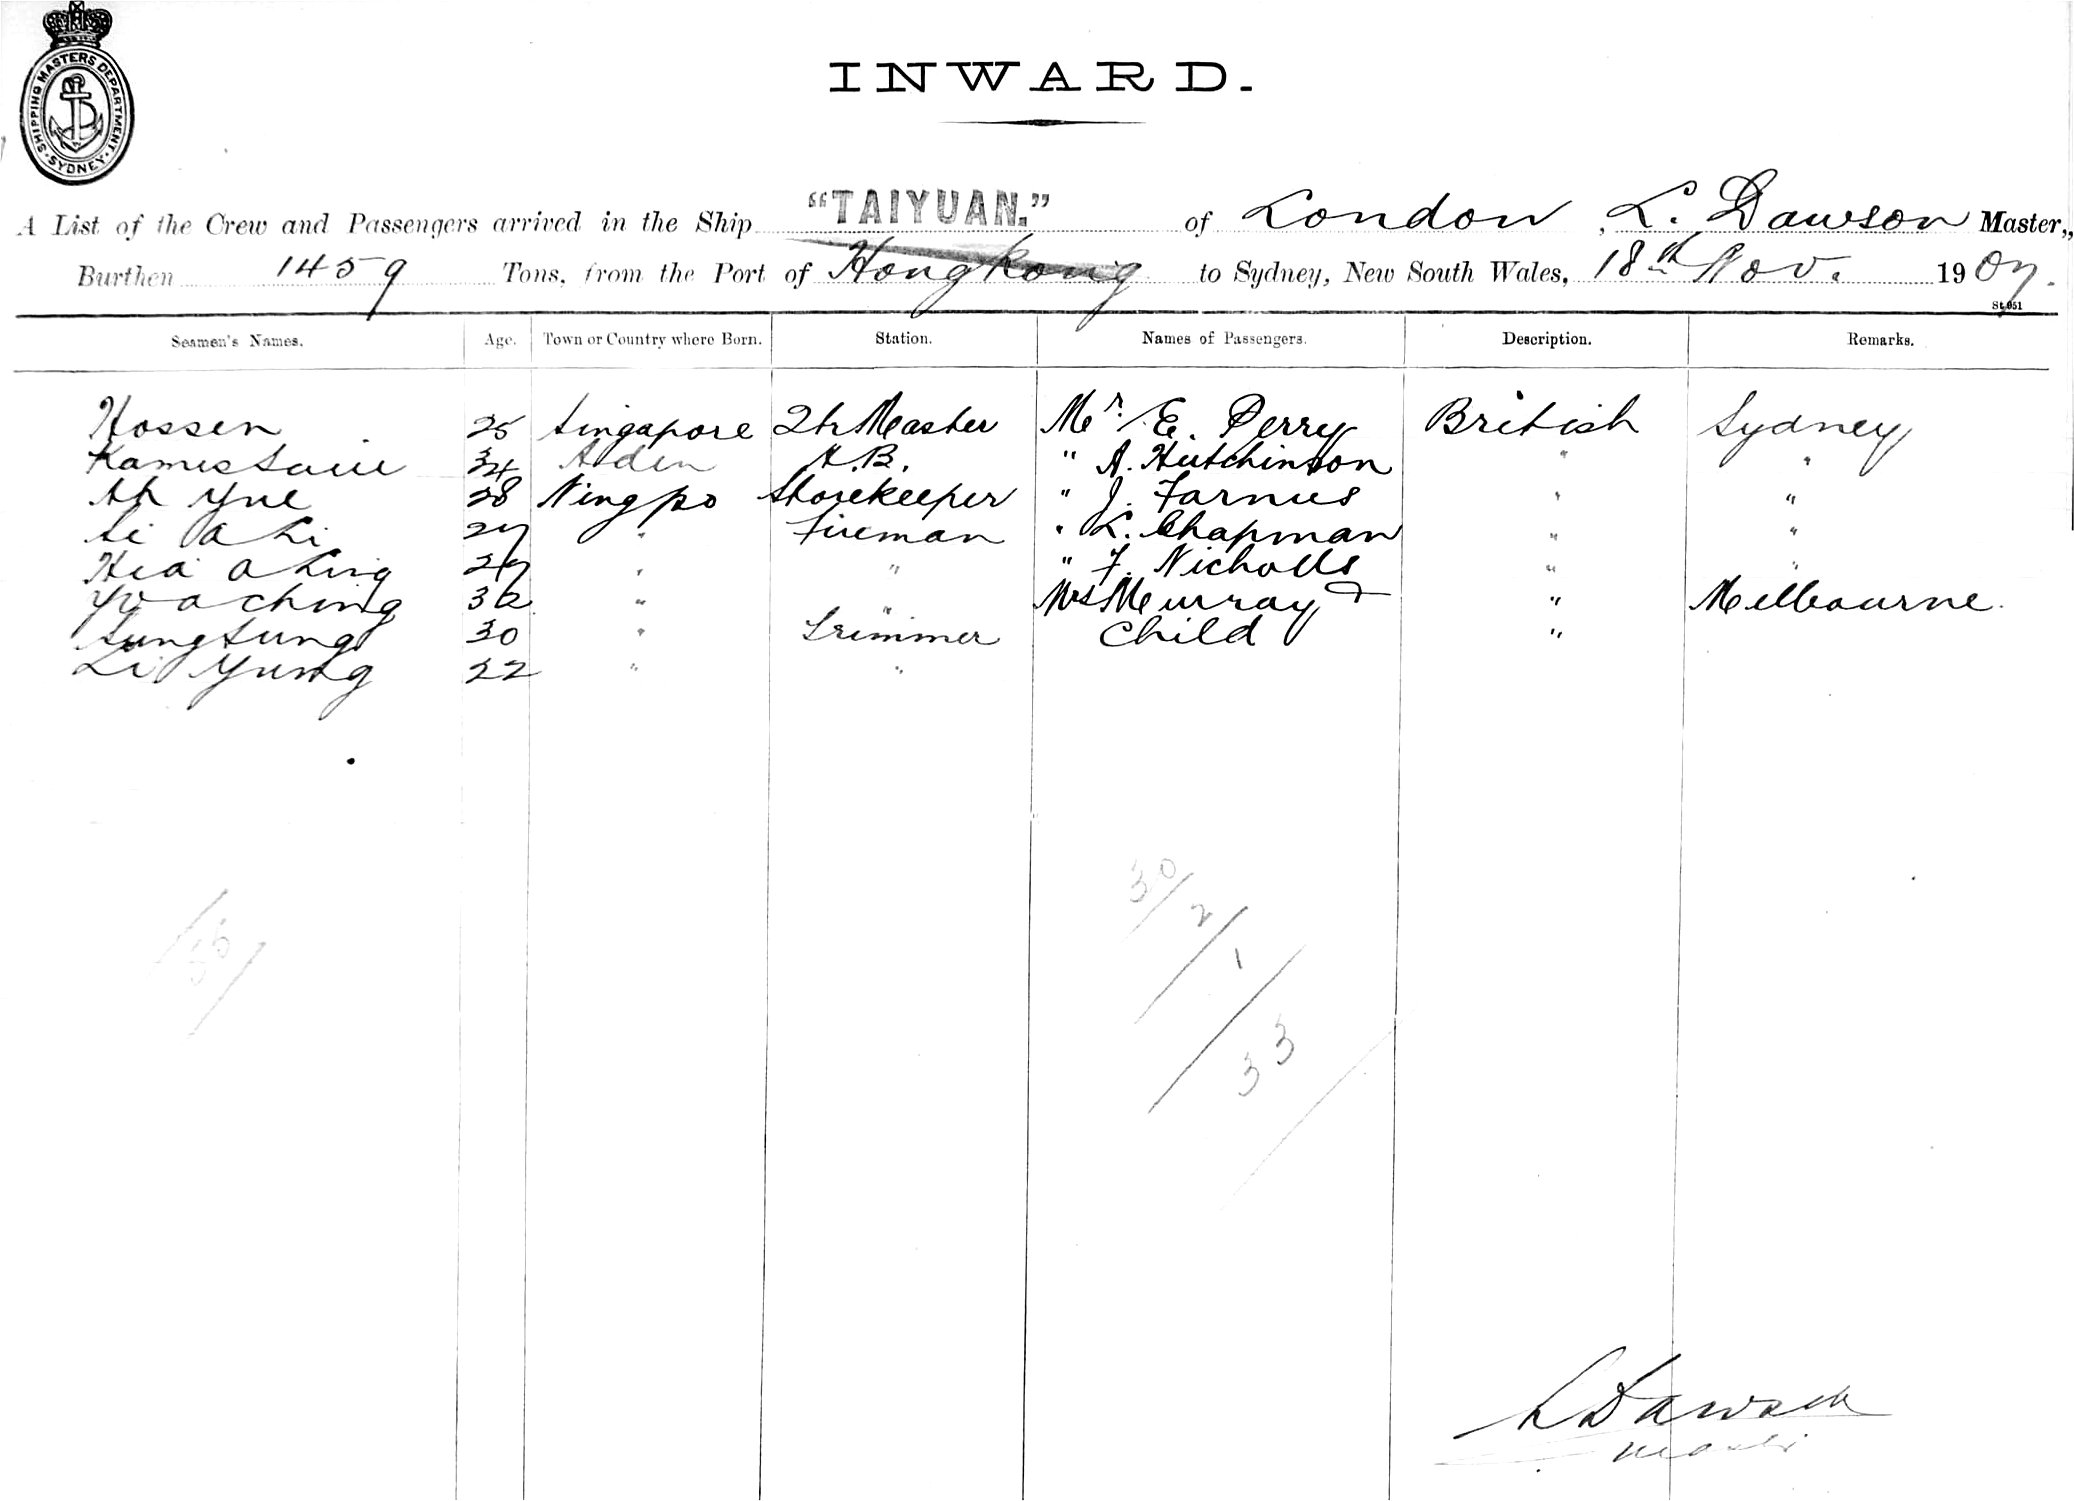 SHIPPING MASTERS DEPARTMENT. SYDNEY
INWARD.
A List of the Crew and Passengers arrived in the Ship "TAIYUAN." of London, L. Dawson Master,
Burthen 1459 Tons, from the Port of Hongkong to Sydney, New South Wales, 18th Nov. 1907.
St 951
Seamen's Names. Age. Town or Country where Born. Station. Names of Passengers. Description. Remarks.
Hossen 25 Singapore Mr. E. Perry British Sydney
34 Aden " A. Hutchinson " "
Ah Yne 28 Ningpo Storekeeper " J. " "
27 " Fireman " L. Chapman " "
" " " F. Nicholls " "
32 " " Mrs Murray & " Melbourne.
Sung Sung 30 " Trimmer Child "
Li Yung 22 " "
30
2
1
33
L Dawson
Master